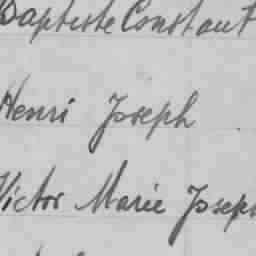 Baptiste Constant
Henri Joseph
Victor Marie Joseph